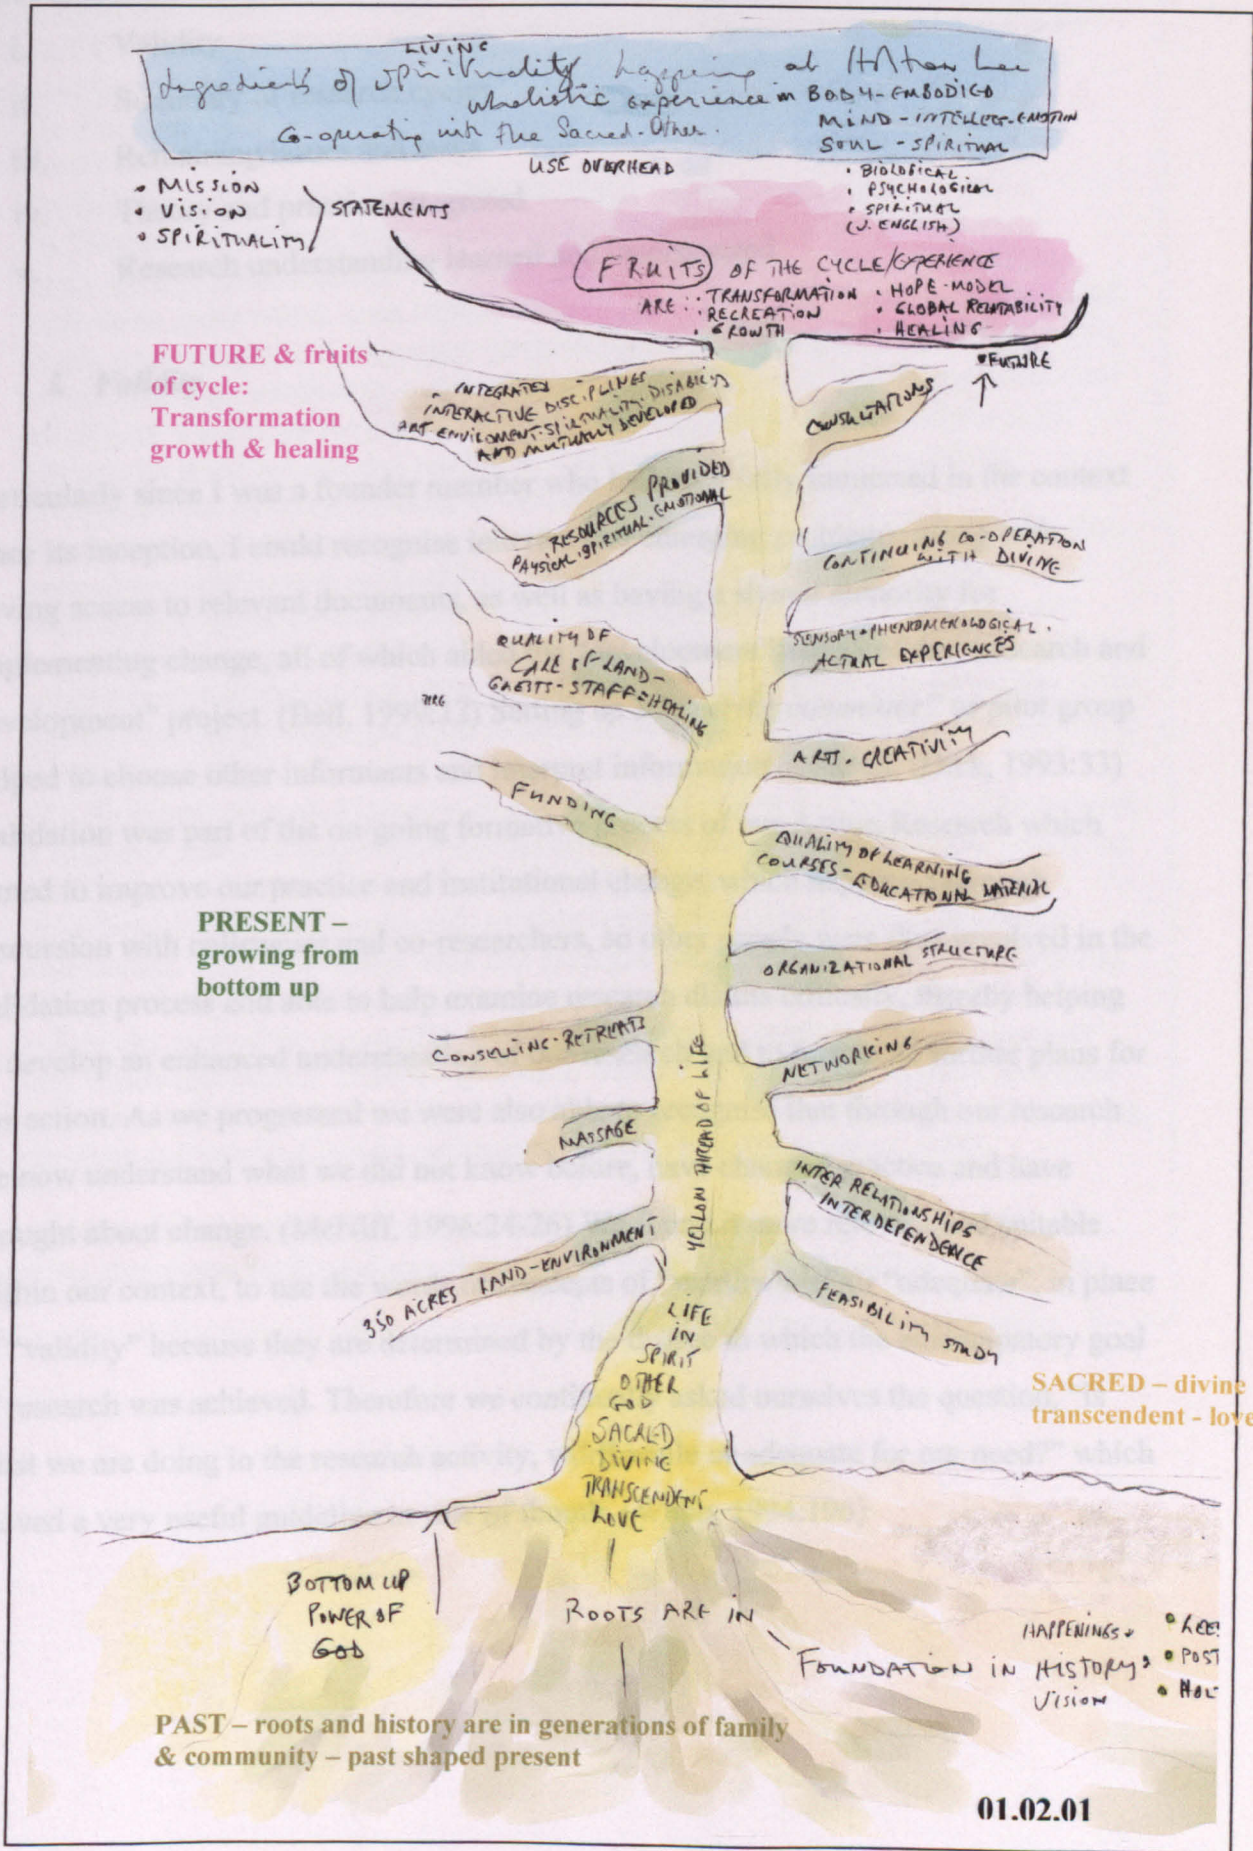 LIVING
Ingredients of spirituality happening at Holton Lee
wholistic experience in BODY-EMBODIED
MIND - INTELLECT-EMOTION
Co-operating with the Sacred-Other.
SOUL - SPIRITUAL
USE OVERHEAD
• BIOLOGICAL
• PSYCHOLOGICAL
• SPIRITUAL
(J. ENGLISH)
• MISSION
• VISION
• SPIRITUALITY
STATEMENTS
FRUITS OF THE CYCLE/EXPERIENCE
ARE: • TRANSFORMATION • HOPE-MODEL
• RECREATION • GLOBAL RELATABILITY
• GROWTH • HEALING
FUTURE & fruits
of cycle:
Transformation
growth & healing
• FUTURE
• INTEGRATED
INTERACTIVE DISCIPLINES
ART-ENVIROMENT-SPIRITUALITY-DISABILITY
AND MUTUALLY DEVELOPED
CONSULTATIONS
RESOURCES PROVIDED
PHYSICAL-SPIRITUAL-EMOTIONAL
CONTINUING CO-OPERATION
WITH DIVINE
QUALITY OF
CARE OF LAND-
GUESTS-STAFF=HEALING
SENSORY-PHENOMENOLOGICAL.
ACTUAL EXPERIENCES
ARTS. CREATIVITY
FUNDING
QUALITY OF LEARNING
COURSES-EDUCATIONAL MATERIAL
PRESENT –
growing from
bottom up
ORGANIZATIONAL STRUCTURE
CONSELLING-RETREATS
NETWORKING
MASSAGE
YELLOW THREAD OF LIFE
INTER RELATIONSHIPS
INTERDEPENDENCE
350 ACRES LAND-ENVIRONMENT
FEASIBILITY STUDY
LIFE
IN
SPIRIT
OTHER
GOD
SACRED
DIVING
TRANSCENDENT
LOVE
SACRED – divine
transcendent - love
BOTTOM UP
POWER OF
GOD
ROOTS ARE IN
FOUNDATION IN HISTORY
HAPPENINGS
VISION
• LEE
• POST
• HOL
PAST – roots and history are in generations of family
& community – past shaped present
01.02.01